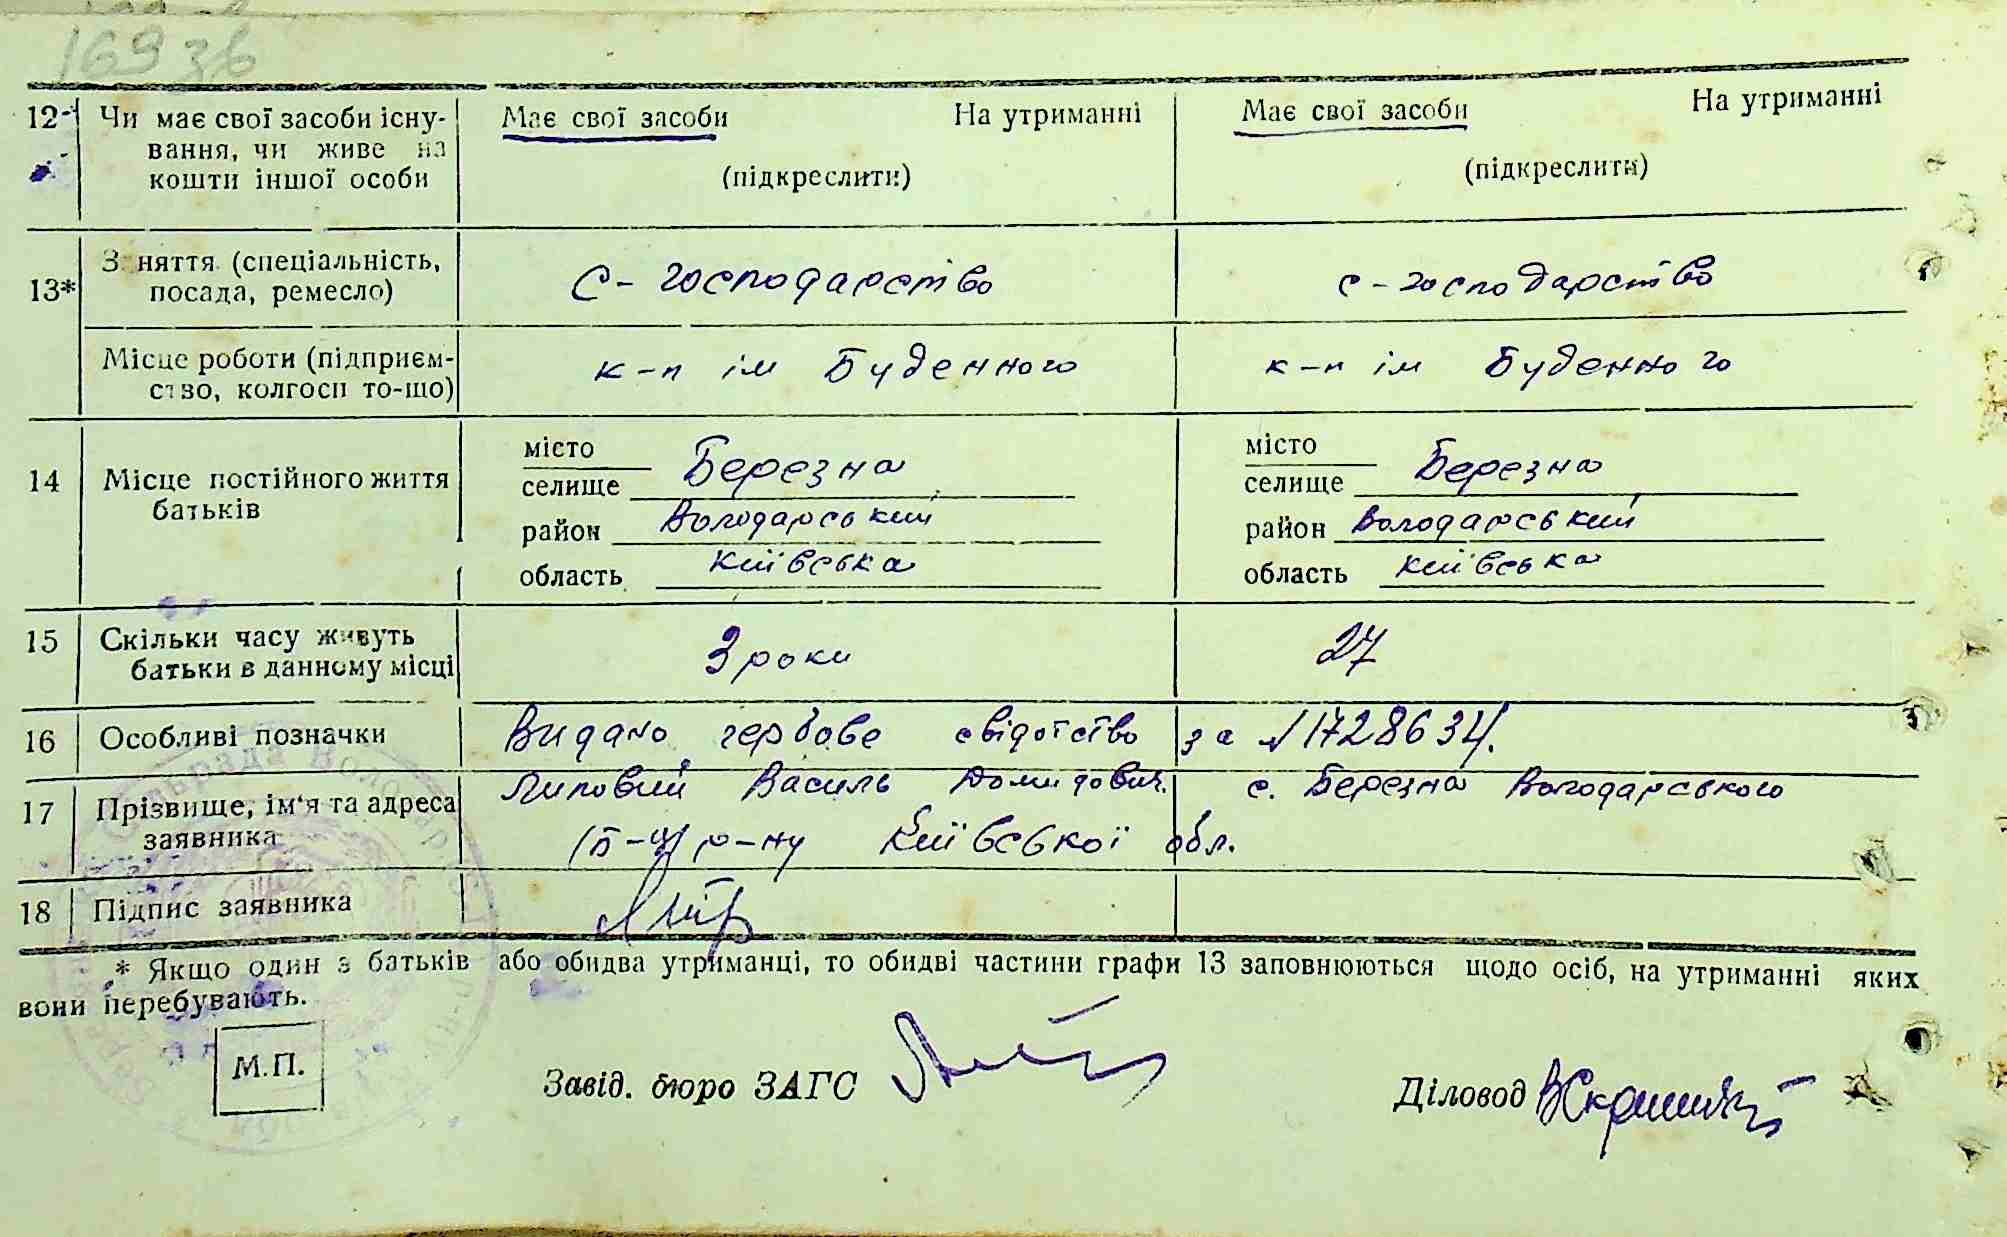 169 зв
12* Чи має свої засоби існу- Має свої засоби На утриманні Має свої засоби На утриманні
вання, чи живе на
кошти іншої особи (підкреслити) (підкреслити)
13* Заняття (спеціальність, С-господарство с-господарство
посада, ремесло)
Місце роботи (підприєм- к-п ім Буденного к-п ім Буденного
ство, колгосп то-що)
14 Місце постійного життя місто Березна місто Березна
батьків селище селище
район Володарський район Володарський
область Київська область Київська
15 Скільки часу живуть 3 роки 27
батьки в данному місці
16 Особливі позначки Видано гербове свідотство за №1728634.
17 Прізвище, ім'я та адреса Липовий Василь Домидович. с. Березна Володарського
заявника (Б-Ц) р-ну Київської обл.
18 Підпис заявника
* Якщо один з батьків або обидва утриманці, то обидві частини графи 13 заповнюються щодо осіб, на утриманні яких
вони перебувають.
М.П.
Завід. бюро ЗАГС Діловод